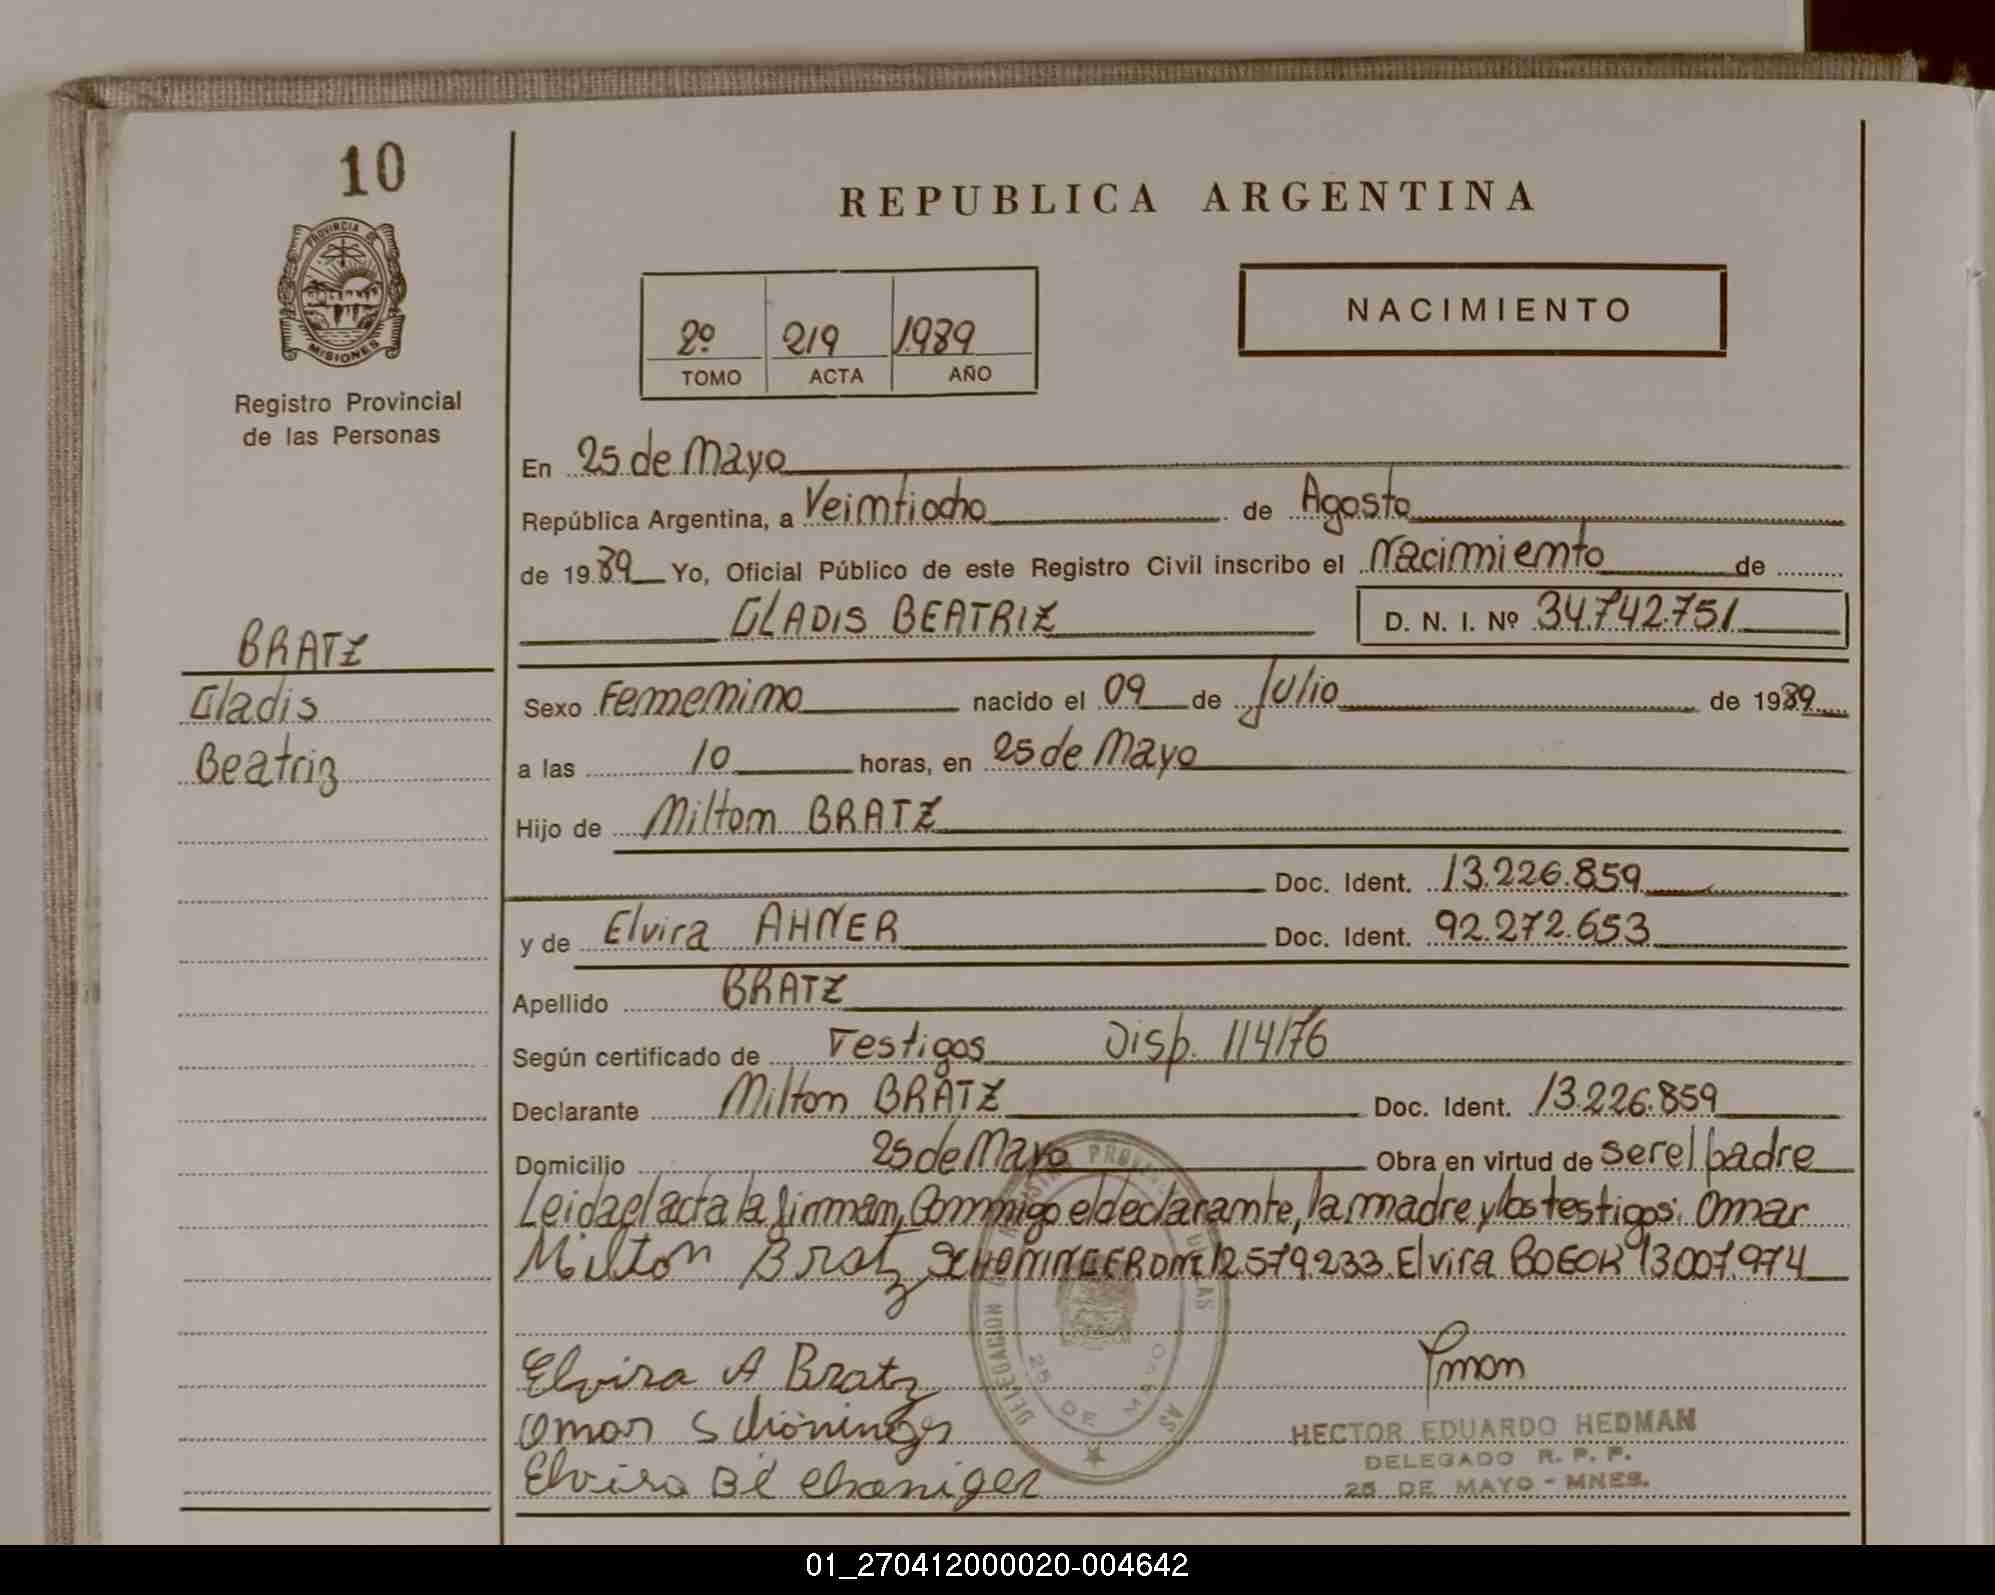 10
REPUBLICA ARGENTINA
PROVINCIA DE
MISIONES
Registro Provincial
de las Personas
NACIMIENTO
2º 219 1989
TOMO ACTA AÑO
En 25 de Mayo
República Argentina, a Veintiocho de Agosto
de 1989 Yo, Oficial Público de este Registro Civil inscribo el Nacimiento de
GLADIS BEATRIZ D. N. I. Nº 34.742.751
BRATZ
Gladis
Beatriz
Sexo Femenino nacido el 09 de Julio de 1989
a las 10 horas, en 25 de Mayo
Hijo de Milton BRATZ
Doc. Ident. 13.226.859
y de Elvira AHNER Doc. Ident. 92.272.653
Apellido BRATZ
Según certificado de Testigos Disp. 114/76
Declarante Milton BRATZ Doc. Ident. 13.226.859
Domicilio 25 de Mayo Obra en virtud de ser el padre
Leida el acta la firman, Conmigo el declarante, la madre y los testigos: Omar
Milton Bratz SCHONINGER DNI 12.579.233. Elvira 13.007.974
Elvira A Bratz
Omar Schöninger
Elvira
DELEGACION
25 DE MAYO
HECTOR EDUARDO HEDMAN
DELEGADO R. P. P.
25 DE MAYO - MNES.
01_270412000020-004642